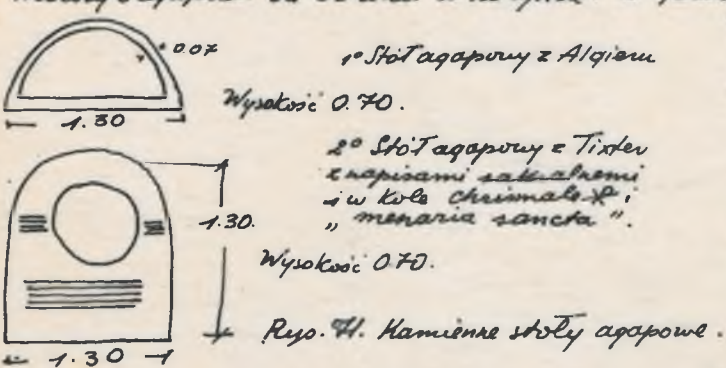 0.07
1° Stół agapowy z Algieru
1.30
Wysokość 0.70.
2° Stół agapowy z Tixter
z napisami sakralnemi
i w kole chrismale i
„menaria sancta".
1.30.
Wysokość 0.70.
1.30
Rys. 71. Kamienne stoły agapowe.